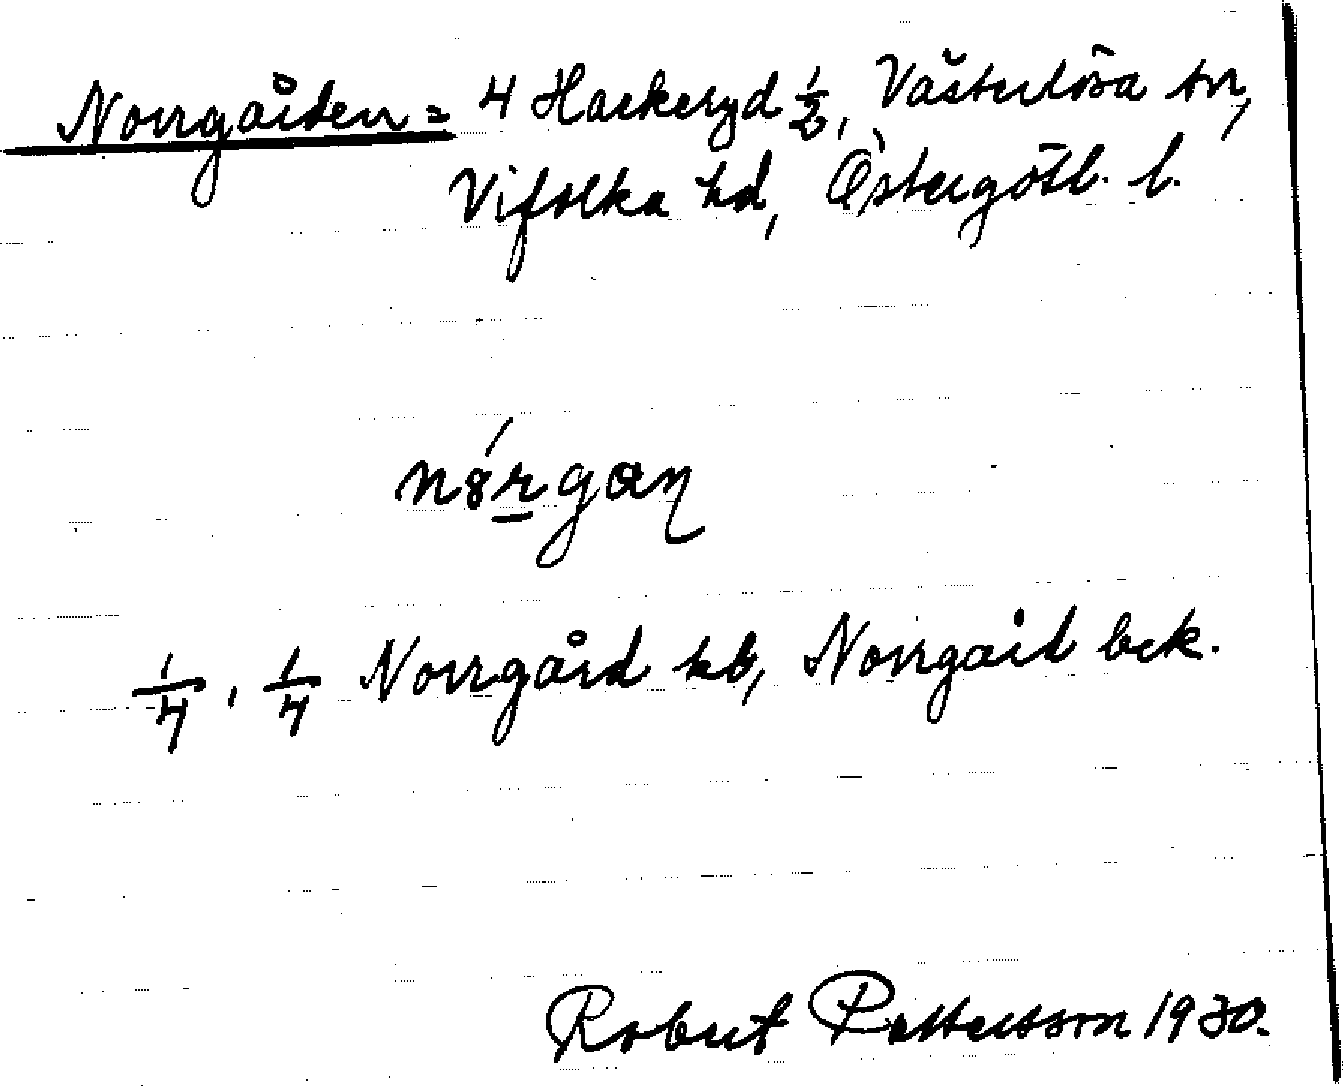 Norrgården = 4 Hackeryd ½, Västerlösa sn,
Vifolka hd, Östergötl. l.
nórgan
¼, ¼ Norrgård kb, Norrgård bek.
Robert Pettersson 1930.